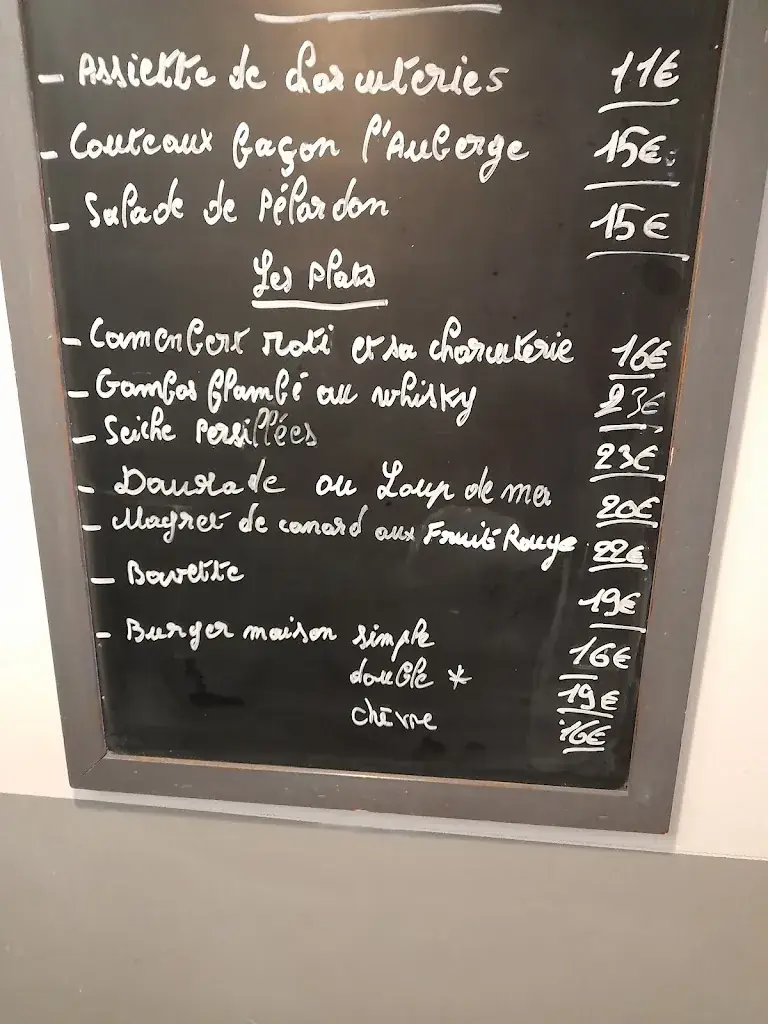 - Assiette de charcuteries 11€
- Couteaux façon l'Auberge 15€
- Salade de Pélardon 15€
Les Plats
- Camembert roti et sa charcuterie 16€
- Gambas flambé au whisky 23€
- Seiche Persillées 23€
- Daurade ou Loup de mer 20€
- Magret de canard aux Fruits Rouge 22€
- Bavette 19€
- Burger maison simple 16€
double * 19€
chèvre 16€